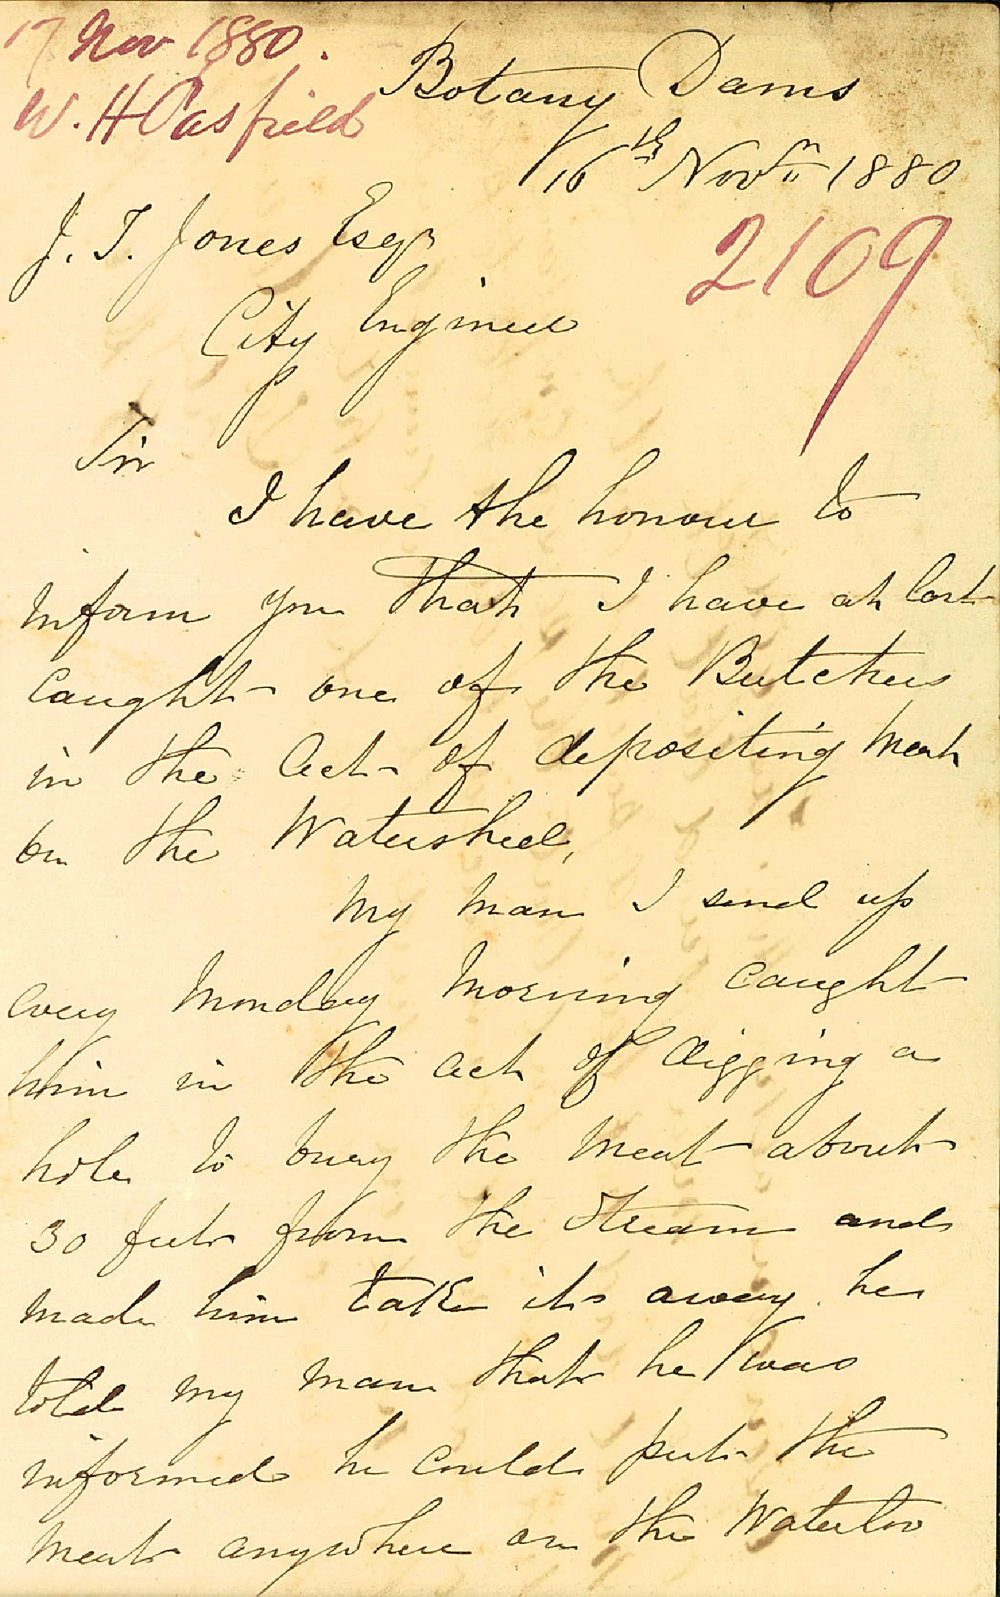 17 Nov 1880.
W. H Pasfield
Botany Dams
16th Novm 1880
2109
J. T. Jones Esqr
City Engineer
Sir
I have the honour to
inform you that I have at last
caught one of the Butchers
in the act of depositing meat
on the Watershed,
My man I send up
every Monday morning caught
him in the act of digging a
hole to bury the meat about
30 feet from the stream and
made him take it away he
told my man that he was
informed he could put the
meat anywhere on the Waterloo